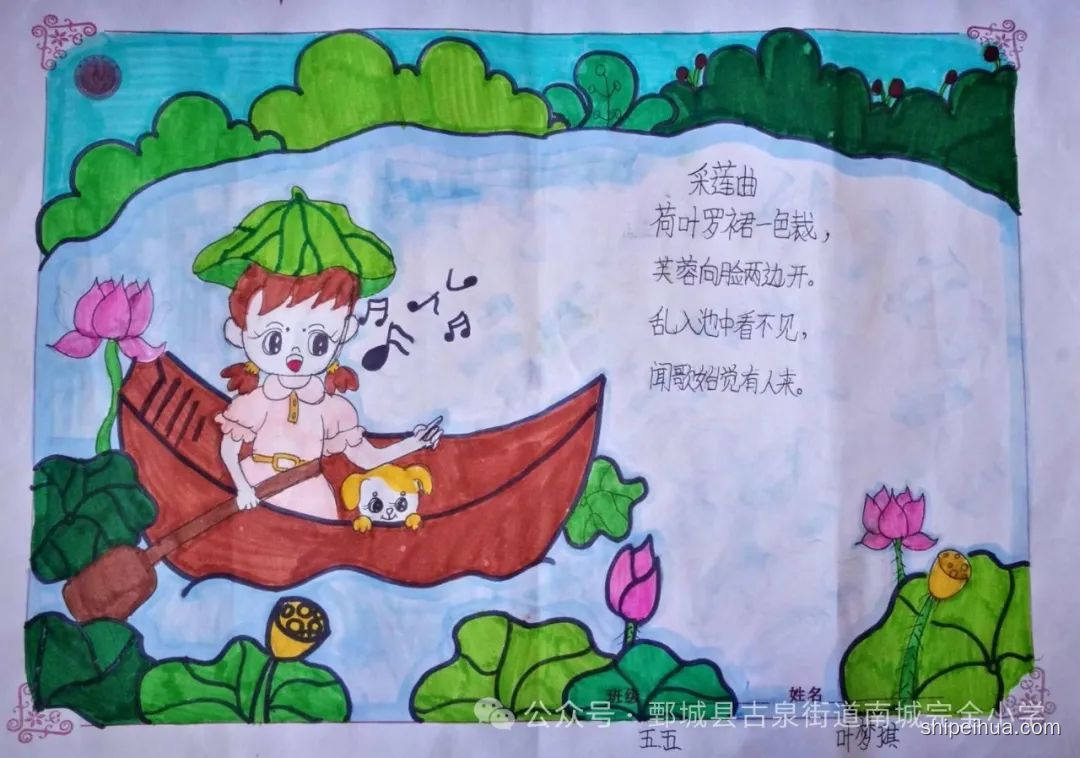 采莲曲
荷叶罗裙一色裁，
芙蓉向脸两边开。
乱入池中看不见，
闻歌始觉有人来。
班级 姓名
公众号·鄄城县古泉街道南城完全小学
五五 叶梦琪
shipeihua.com